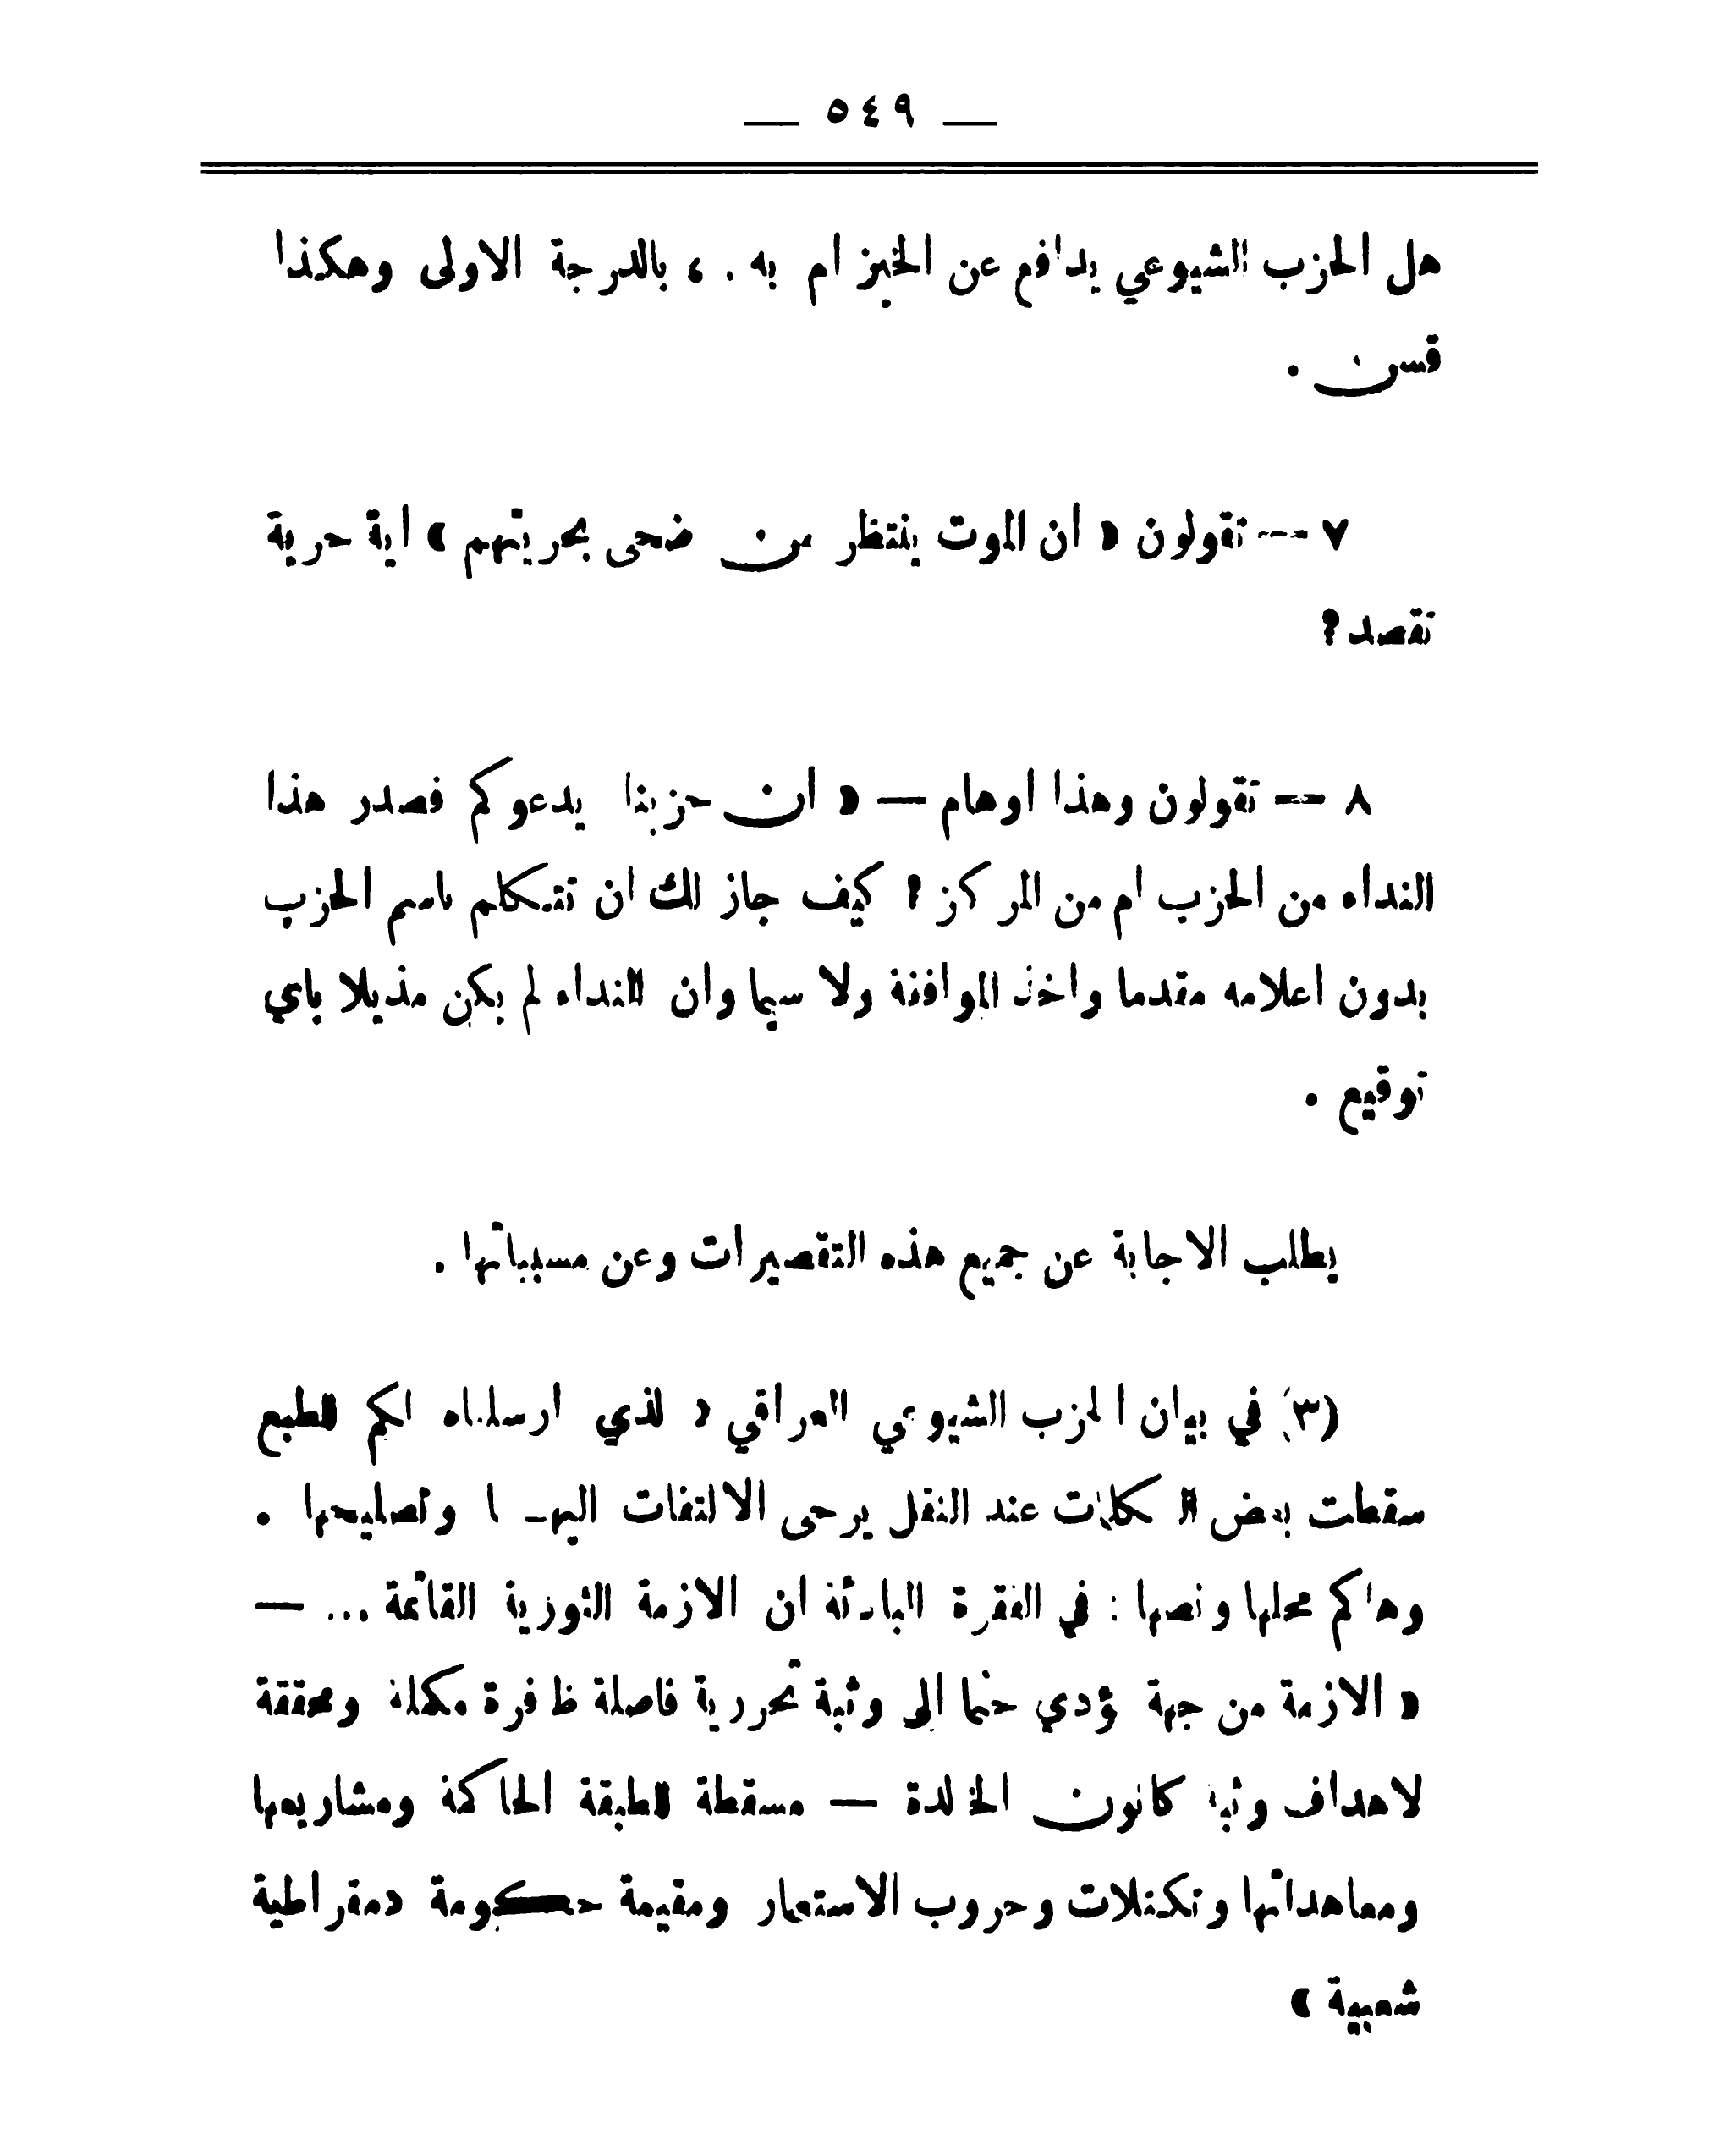 — ٥٤٩ —
هل الحزب الشيوعي يدافع عن الخبز ام به . ، بالدرجة الاولى وهكذا
قسن .
٧ --- تقولون « ان الموت ينتظر من ضحى بحريتهم » اية حرية
تقصد ?
٨ -- تقولون وهذا اوهام — « ان حزبنا يدعوكم فصدر هذا
النداء من الحزب ام من المركز ? كيف جاز لك ان تتكلم باسم الحزب
بدون اعلامه مقدما واخذ الموافقة ولا سيما وان النداء لم يكن مذيلا باي
توقيع .
يطلب الاجابة عن جميع هذه التقصيرات وعن مسبباتها .
(٣) في بيان الحزب الشيوعي العراقي « لذي ارسلناه اليكم للطبع
سقطت بعض الكلمات عند النقل يرجى الالتفات اليها وتصليحها .
وهاكم محلها ونصها : في الفقرة البادئة ان الازمة الثورية القائمة ... —
« الازمة من جهة تؤدي حتما الى وثبة تحررية فاصلة ظافرة مكملة ومحققة
لاهداف وثبة كانون الخالدة — مسقطة للطبقة الحاكمة ومشاريعها
ومعاهداتها وتكتلات وحروب الاستعمار ومقيمة حكومة دمقراطية
شعبية »